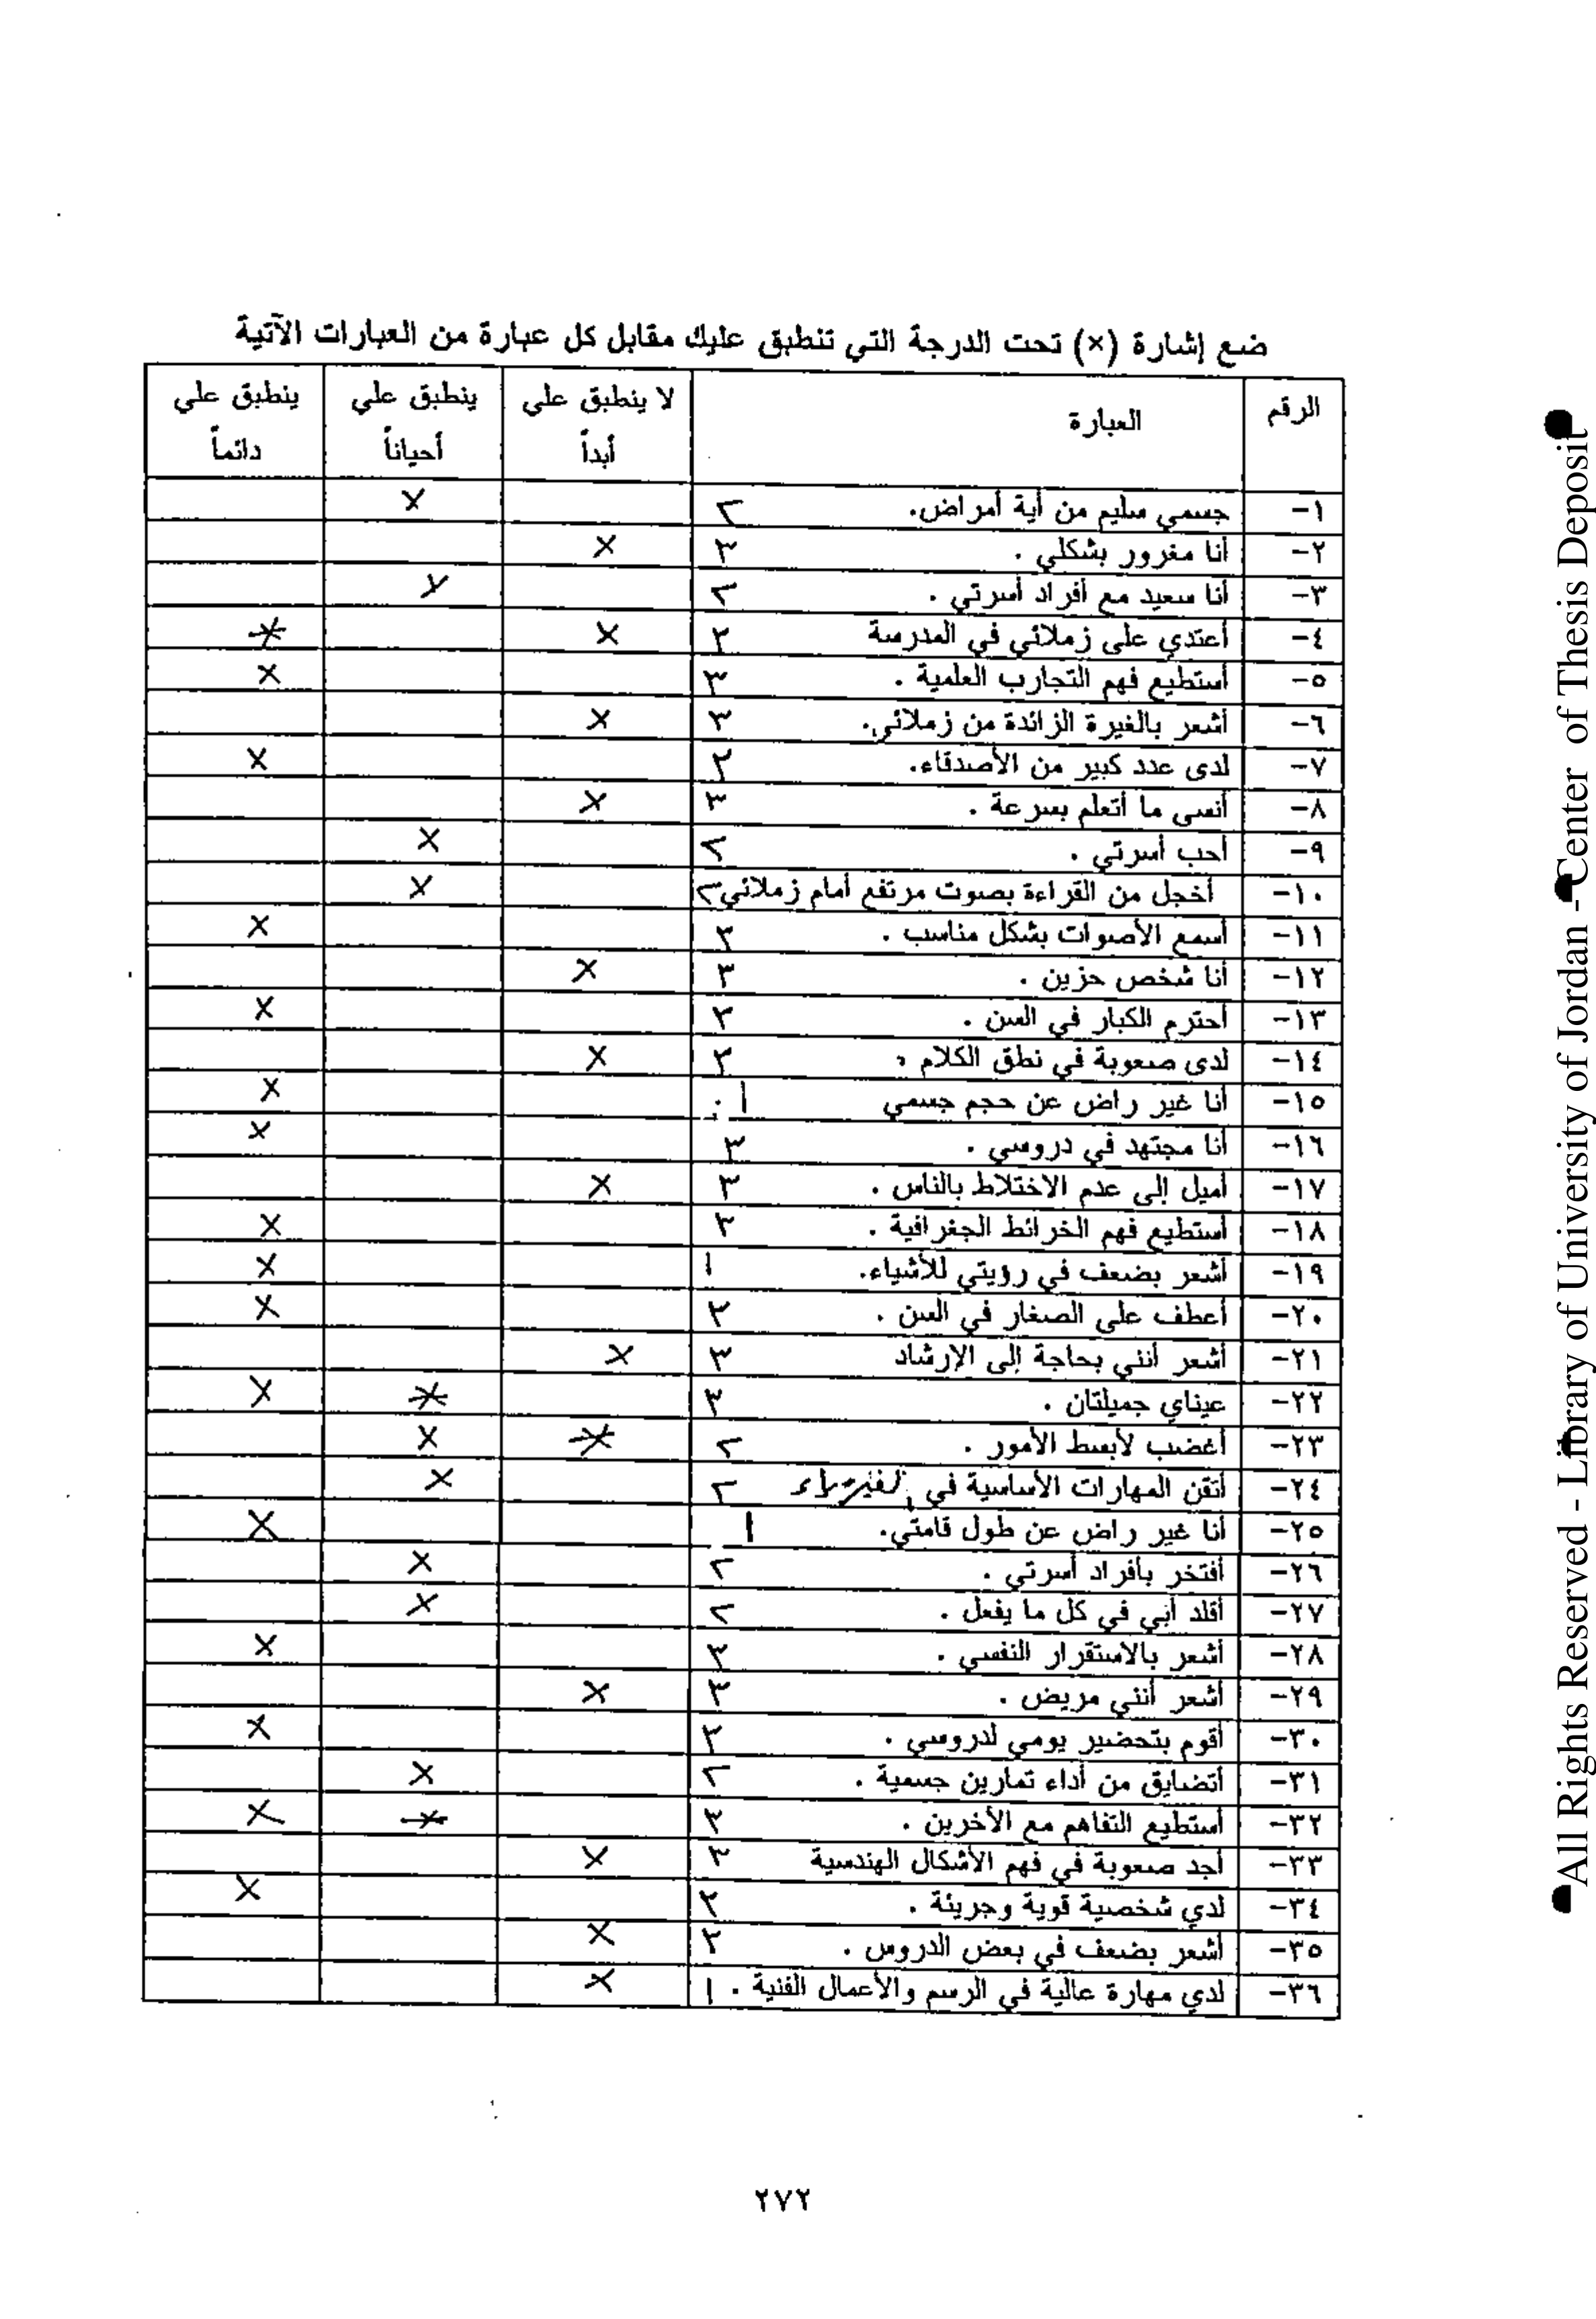 ضع إشارة (×) تحت الدرجة التي تنطبق عليك مقابل كل عبارة من العبارات الآتية
الرقم العبارة لا ينطبق علي أبداً ينطبق علي أحياناً ينطبق علي دائماً
١- جسمي سليم من أية أمراض. ٢ ×
٢- أنا مغرور بشكلي . ٣ ×
٣- أنا سعيد مع أفراد أسرتي . ٢ ×
٤- أعتدي على زملائي في المدرسة ٣ × ×
٥- أستطيع فهم التجارب العلمية . ٣ ×
٦- أشعر بالغيرة الزائدة من زملائي. ٣ ×
٧- لدى عدد كبير من الأصدقاء. ٣ ×
٨- أنسى ما أتعلم بسرعة . ٣ ×
٩- أحب أسرتي . ٢ ×
١٠- أخجل من القراءة بصوت مرتفع أمام زملائي ٢ ×
١١- أسمع الأصوات بشكل مناسب . ٣ ×
١٢- أنا شخص حزين . ٣ ×
١٣- أحترم الكبار في السن . ٣ ×
١٤- لدى صعوبة في نطق الكلام . ٣ ×
١٥- أنا غير راض عن حجم جسمي ١ ×
١٦- أنا مجتهد في دروسي . ٣ ×
١٧- أميل إلى عدم الاختلاط بالناس . ٣ ×
١٨- أستطيع فهم الخرائط الجغرافية . ٣ ×
١٩- أشعر بضعف في رؤيتي للأشياء. ١ ×
٢٠- أعطف على الصغار في السن . ٣ ×
٢١- أشعر أنني بحاجة إلى الإرشاد ٣ ×
٢٢- عيناي جميلتان . ٣ × ×
٢٣- أغضب لأبسط الأمور . ٢ × ×
٢٤- أتقن المهارات الأساسية في الفيزياء ٢ ×
٢٥- أنا غير راض عن طول قامتي. ١ ×
٢٦- أفتخر بأفراد أسرتي . ٢ ×
٢٧- أقلد أبي في كل ما يفعل . ٢ ×
٢٨- أشعر بالاستقرار النفسي . ٣ ×
٢٩- أشعر أنني مريض . ٣ ×
٣٠- أقوم بتحضير يومي لدروسي . ٣ ×
٣١- أتضايق من أداء تمارين جسمية . ٢ ×
٣٢- أستطيع التفاهم مع الأخرين . ٣ × ×
٣٣- أجد صعوبة في فهم الأشكال الهندسية ٣ ×
٣٤- لدي شخصية قوية وجريئة . ٣ ×
٣٥- أشعر بضعف في بعض الدروس . ٣ ×
٣٦- لدي مهارة عالية في الرسم والأعمال الفنية . ١ ×
٢٧٢
All Rights Reserved - Library of University of Jordan - Center of Thesis Deposit